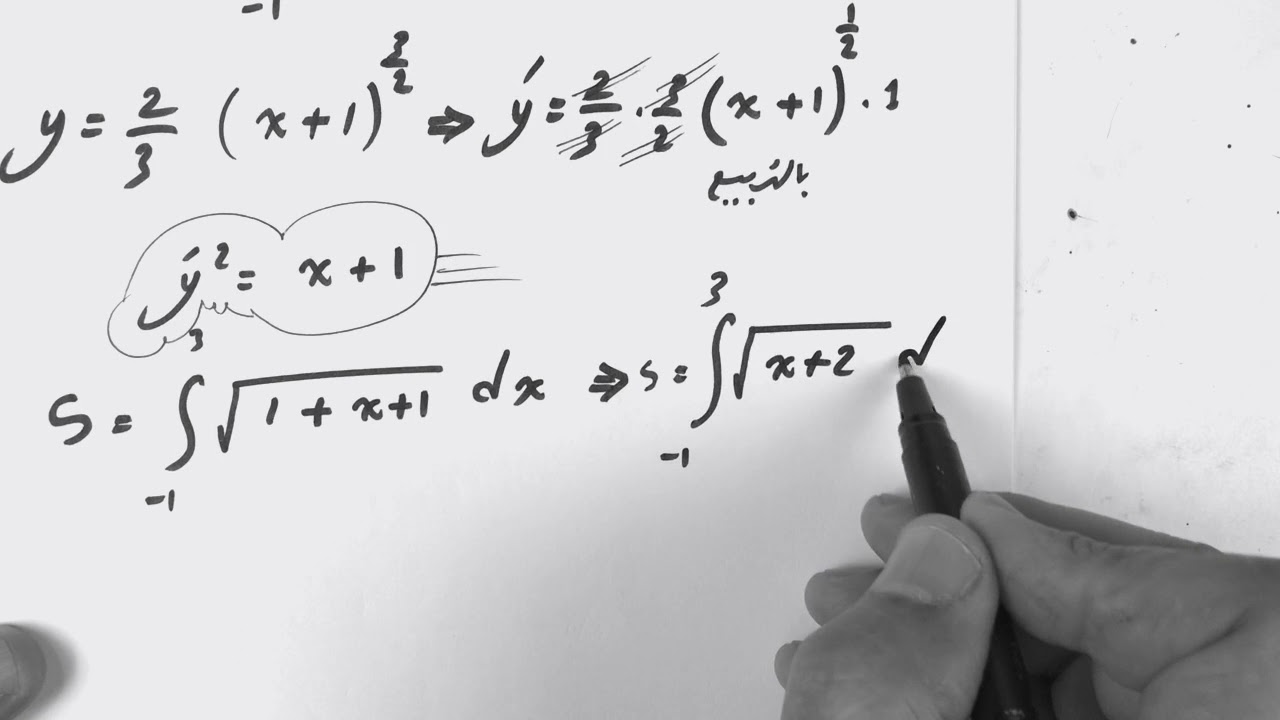 -1
y = 2/3 (x+1)^3/2 ⇒ y′ = 2/3 · 3/2 (x+1)^1/2 · 1
بالتربيع
y′² = x + 1
S = ∫_{-1}^{3} √(1 + x+1) dx ⇒ S = ∫_{-1}^{3} √(x+2) d